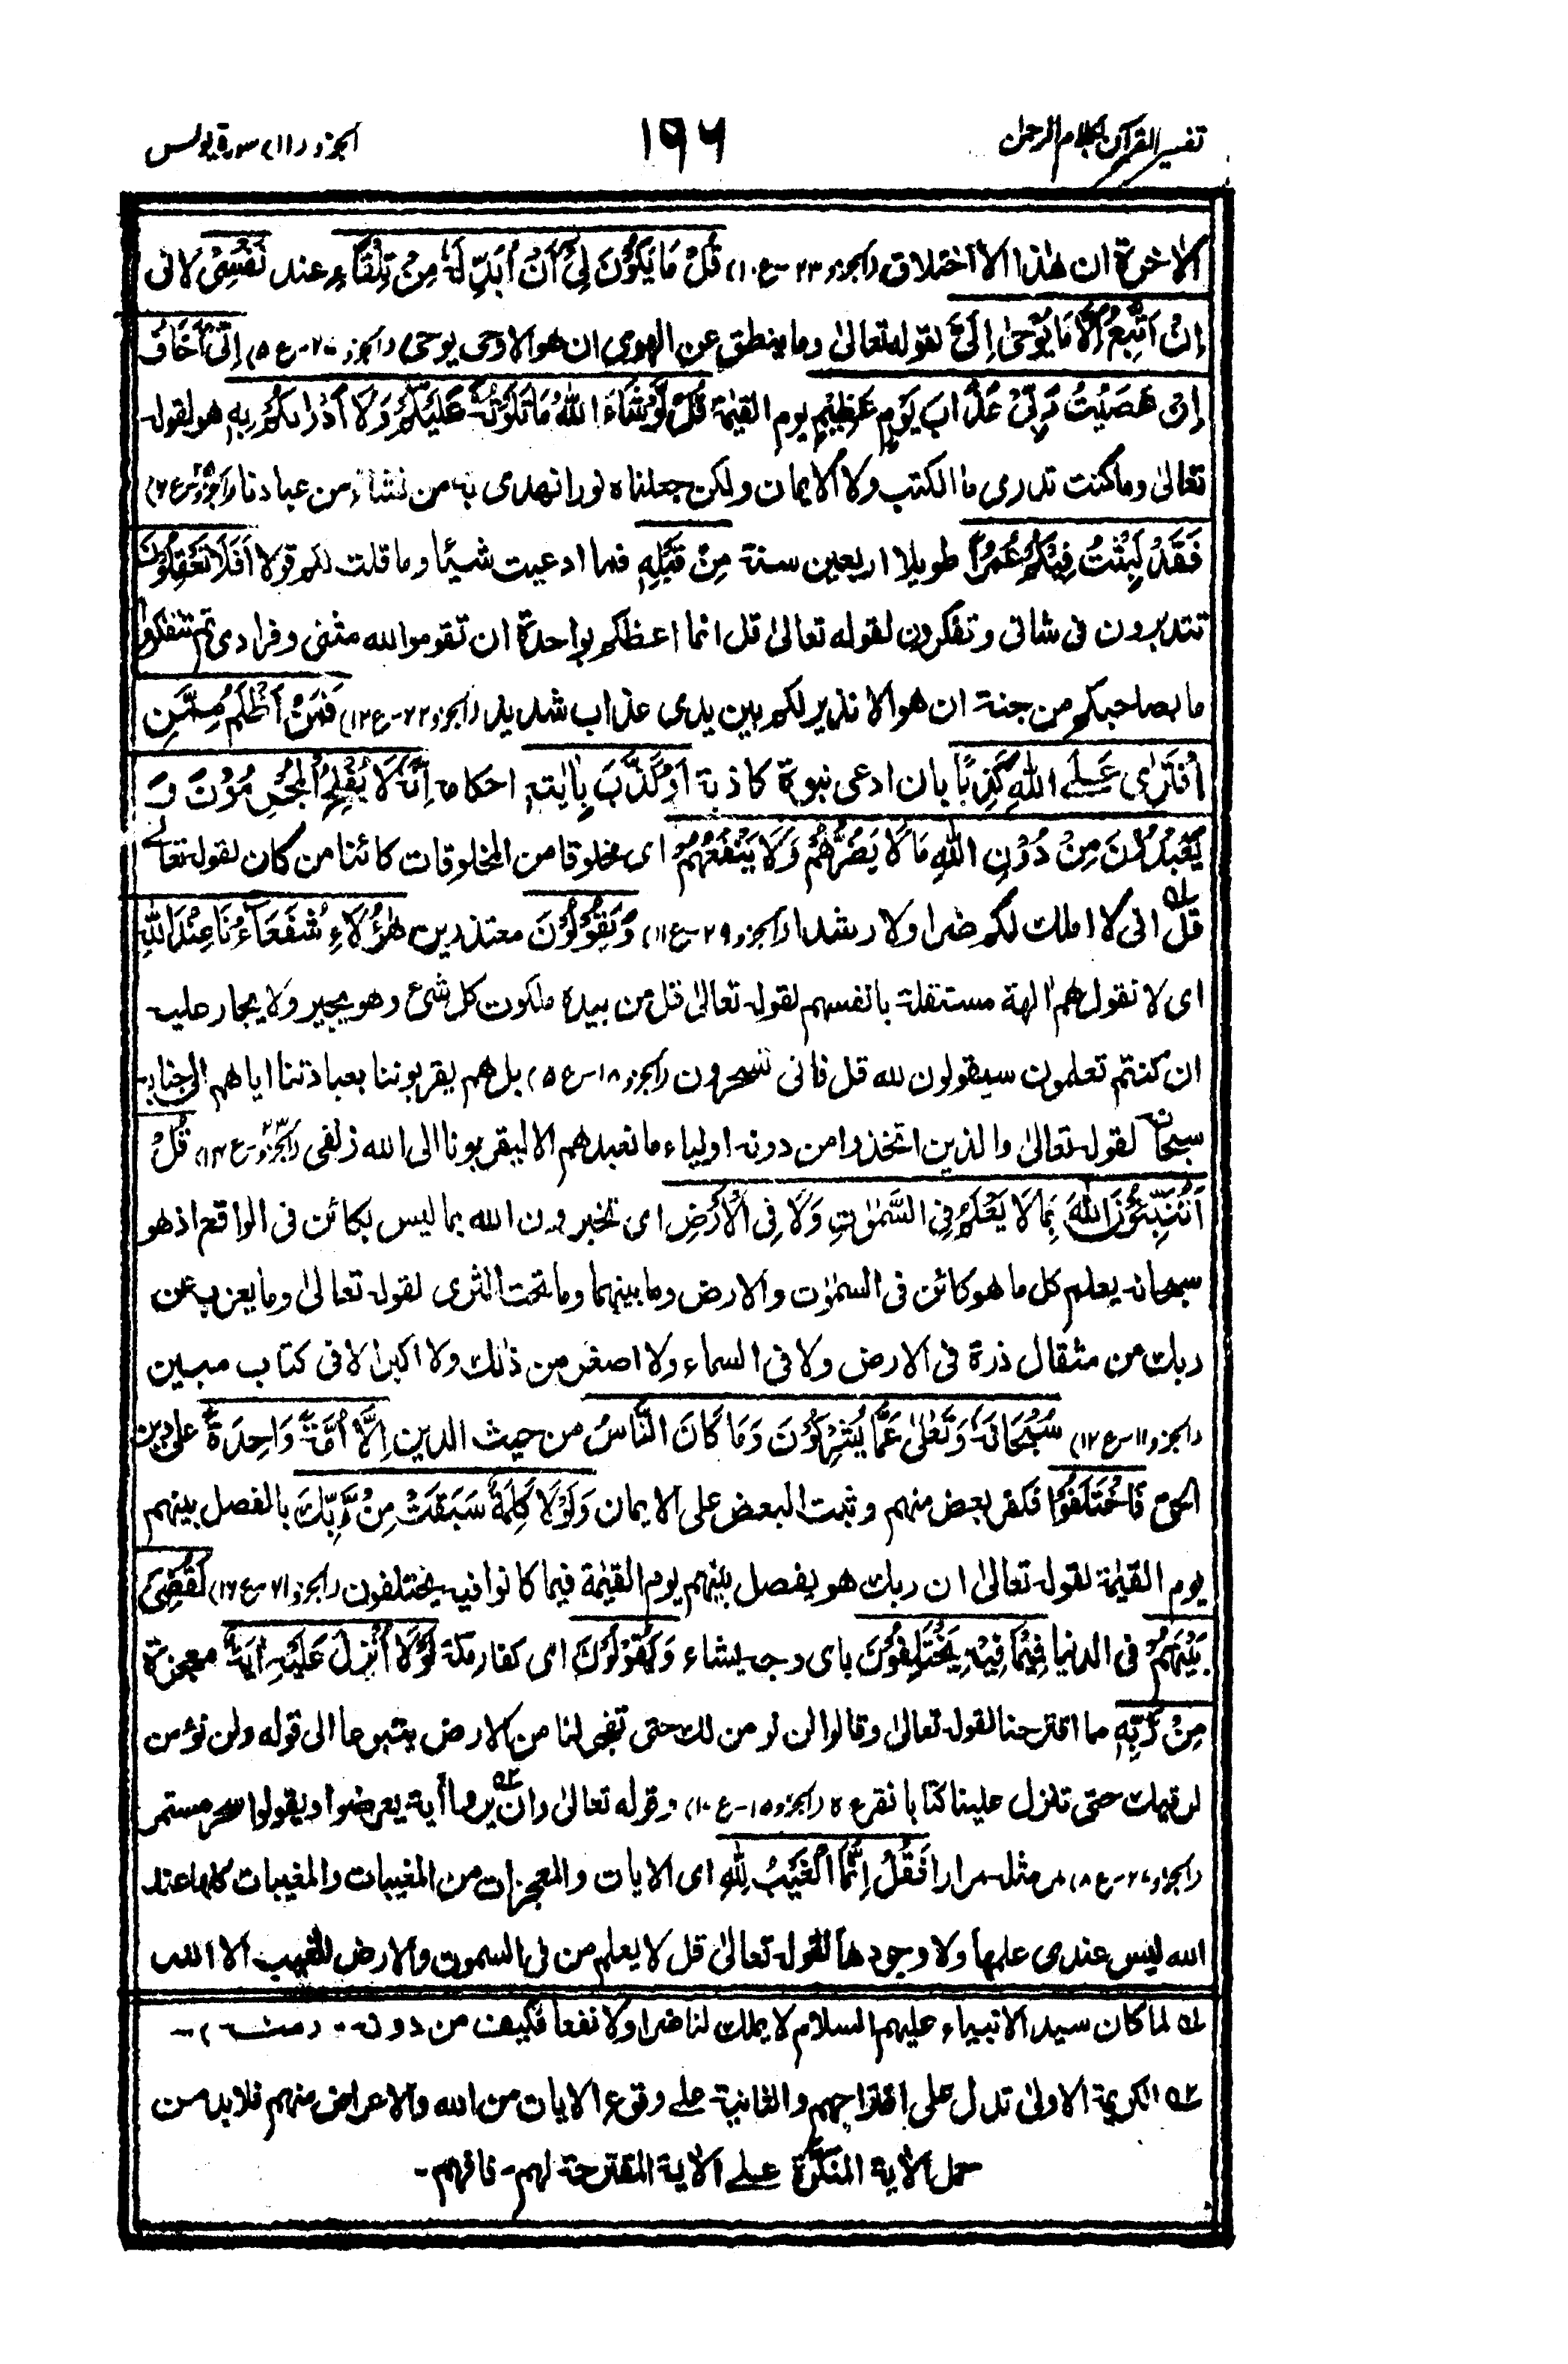 تفسير القرآن بكلام الرحمن
١٩٦
الجزو (١١) سورة يونس
الاٰخرة ان هٰذا الا اختلاق (الجزو ٢٣-ع ١٠) قُلْ مَا يَكُوْنُ لِيْٓ اَنْ اُبَدِّلَهٗ مِنْ تِلْقَآءِ عند نَفْسِيْ لانى
اِنْ اَتَّبِعُ اِلَّا مَا يُوْحٰى اِلَيَّ لقوله تعالىٰ وما ينطق عن الهوى ان هو الا وحى يوحى (الجزو ٢٧-ع ٥) اِنِّيْٓ اَخَافُ
اِنْ عَصَيْتُ رَبِّيْ عَذَابَ يَوْمٍ عَظِيْمٍ يوم القيٰمة قُلْ لَّوْ شَآءَ اللّٰهُ مَا تَلَوْتُهٗ عَلَيْكُمْ وَلَا اَدْرٰىكُمْ بِهٖ هو لقوله
تعالىٰ وما كنت تدرى ما الكتٰب ولا الايمان ولكن جعلناه نورا نهدى به من نشاء من عبادنا (الجزو ٢٥-ع ٦)
فَقَدْ لَبِثْتُ فِيْكُمْ عُمُرًا طويلا اربعين سنة مِنْ قَبْلِهٖ فما ادعيت شيئا وما قلت لكم قولا اَفَلَا تَعْقِلُوْنَ
تتدبرون فى شانى وتفكرون لقوله تعالىٰ قل انما اعظكم بواحدة ان تقوموا لله مثنى وفرادى ثم تتفكروا
ما بصاحبكم من جنة ان هو الا نذير لكم بين يدى عذاب شديد (الجزو ٢٢-ع ١٢) فَمَنْ اَظْلَمُ مِمَّنِ
افْتَرٰى عَلَے اللّٰهِ كَذِبًا بان ادعى نبوة كاذبة اَوْ كَذَّبَ بِاٰيٰتِهٖ احكامه اِنَّهٗ لَا يُفْلِحُ الْمُجْرِمُوْنَ وَ
يَعْبُدُوْنَ مِنْ دُوْنِ اللّٰهِ مَا لَا يَضُرُّهُمْ وَلَا يَنْفَعُهُمْ اى مخلوقا من المخلوقات كائنا من كان لقوله تعالے
قل لـه انى لا املك لكم ضرا ولا رشدا (الجزو ٢٩-ع ١١) وَيَقُوْلُوْنَ معتذرين هٰٓؤُلَآءِ شُفَعَآؤُنَا عِنْدَ اللّٰهِ
اى لا نقول هم اٰلهة مستقلة بانفسهم لقوله تعالىٰ قل من بيده ملكوت كل شئ وهو يجير ولا يجار عليه
ان كنتم تعلمون سيقولون لله قل فانى تسحرون (الجزو ١٨-ع ٥) بل هم يقربوننا بعبادتنا اياهم الى جنابه
سبحانه لقوله تعالىٰ والذين اتخذوا من دونه اولياء ما نعبدهم الا ليقربونا الى الله زلفى (الجزو ٢٣-ع ١٥) قُلْ
اَتُنَبِّئُوْنَ اللّٰهَ بِمَا لَا يَعْلَمُ فِى السَّمٰوٰتِ وَلَا فِى الْاَرْضِ اى تخبرون الله بما ليس بكائن فى الواقع اذ هو
سبحانه يعلم كل ما هو كائن فى السمٰوٰت والارض وما بينهما وما تحت الثرى لقوله تعالىٰ وما يعزب عن
ربك من مثقال ذرة فى الارض ولا فى السماء ولا اصغر من ذٰلك ولا اكبر الا فى كتاب مبين
(الجزو ١١-ع ١٢) سُبْحَانَهٗ وَتَعٰلٰى عَمَّا يُشْرِكُوْنَ وَمَا كَانَ النَّاسُ من حيث الدين اِلَّآ اُمَّةً وَّاحِدَةً على دين
الحق فَاخْتَلَفُوْا فكفر بعض منهم وثبت البعض على الايمان وَلَوْلَا كَلِمَةٌ سَبَقَتْ مِنْ رَّبِّكَ بالفصل بينهم
يوم القيٰمة لقوله تعالىٰ ان ربك هو يفصل بينهم يوم القيٰمة فيما كانوا فيه يختلفون (الجزو ٢١-ع ١٦) لَقُضِىَ
بَيْنَهُمْ فى الدنيا فِيْمَا فِيْهِ يَخْتَلِفُوْنَ باى وجه يشاء وَيَقُوْلُوْنَ اى كفار مكة لَوْلَآ اُنْزِلَ عَلَيْهِ اٰيَةٌ معجزة
مِنْ رَّبِّهٖ مما اقترحنا لقوله تعالىٰ وقالوا لن نؤمن لك حتى تفجر لنا من الارض ينبوعا الى قوله ولن نؤمن
لرقيك حتى تنزل علينا كتابا نقرءه (الجزو ١٥-ع ١٠) وقوله تعالىٰ وان ٥٢ يروا اٰية يعرضوا ويقولوا سحر مستمر
(الجزو ٢٧-ع ٨) مر مثله مرارا فَقُلْ اِنَّمَا الْغَيْبُ لِلّٰهِ اى الايات والمعجزات من المغيبات والمغيبات كلها عند
الله ليس عندى علمها ولا وجودها لقوله تعالىٰ قل لا يعلم من فى السمٰوت والارض الغيب الا الله
لـه لما كان سيد الانبياء عليهم السلام لا يملك لنا ضرا ولا نفعا فكيف من دونه - (منه) -
٥٢ الكريمة الاولىٰ تدل على اقتراحهم والثانية علے وقوع الايات من الله والاعراض منهم فلابد من
حمل الاٰية المنكرة علے الاٰية المقترحة لهم - فافهم -